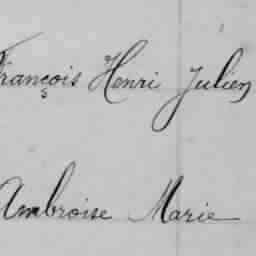 François Henri Julien
Ambroise Marie